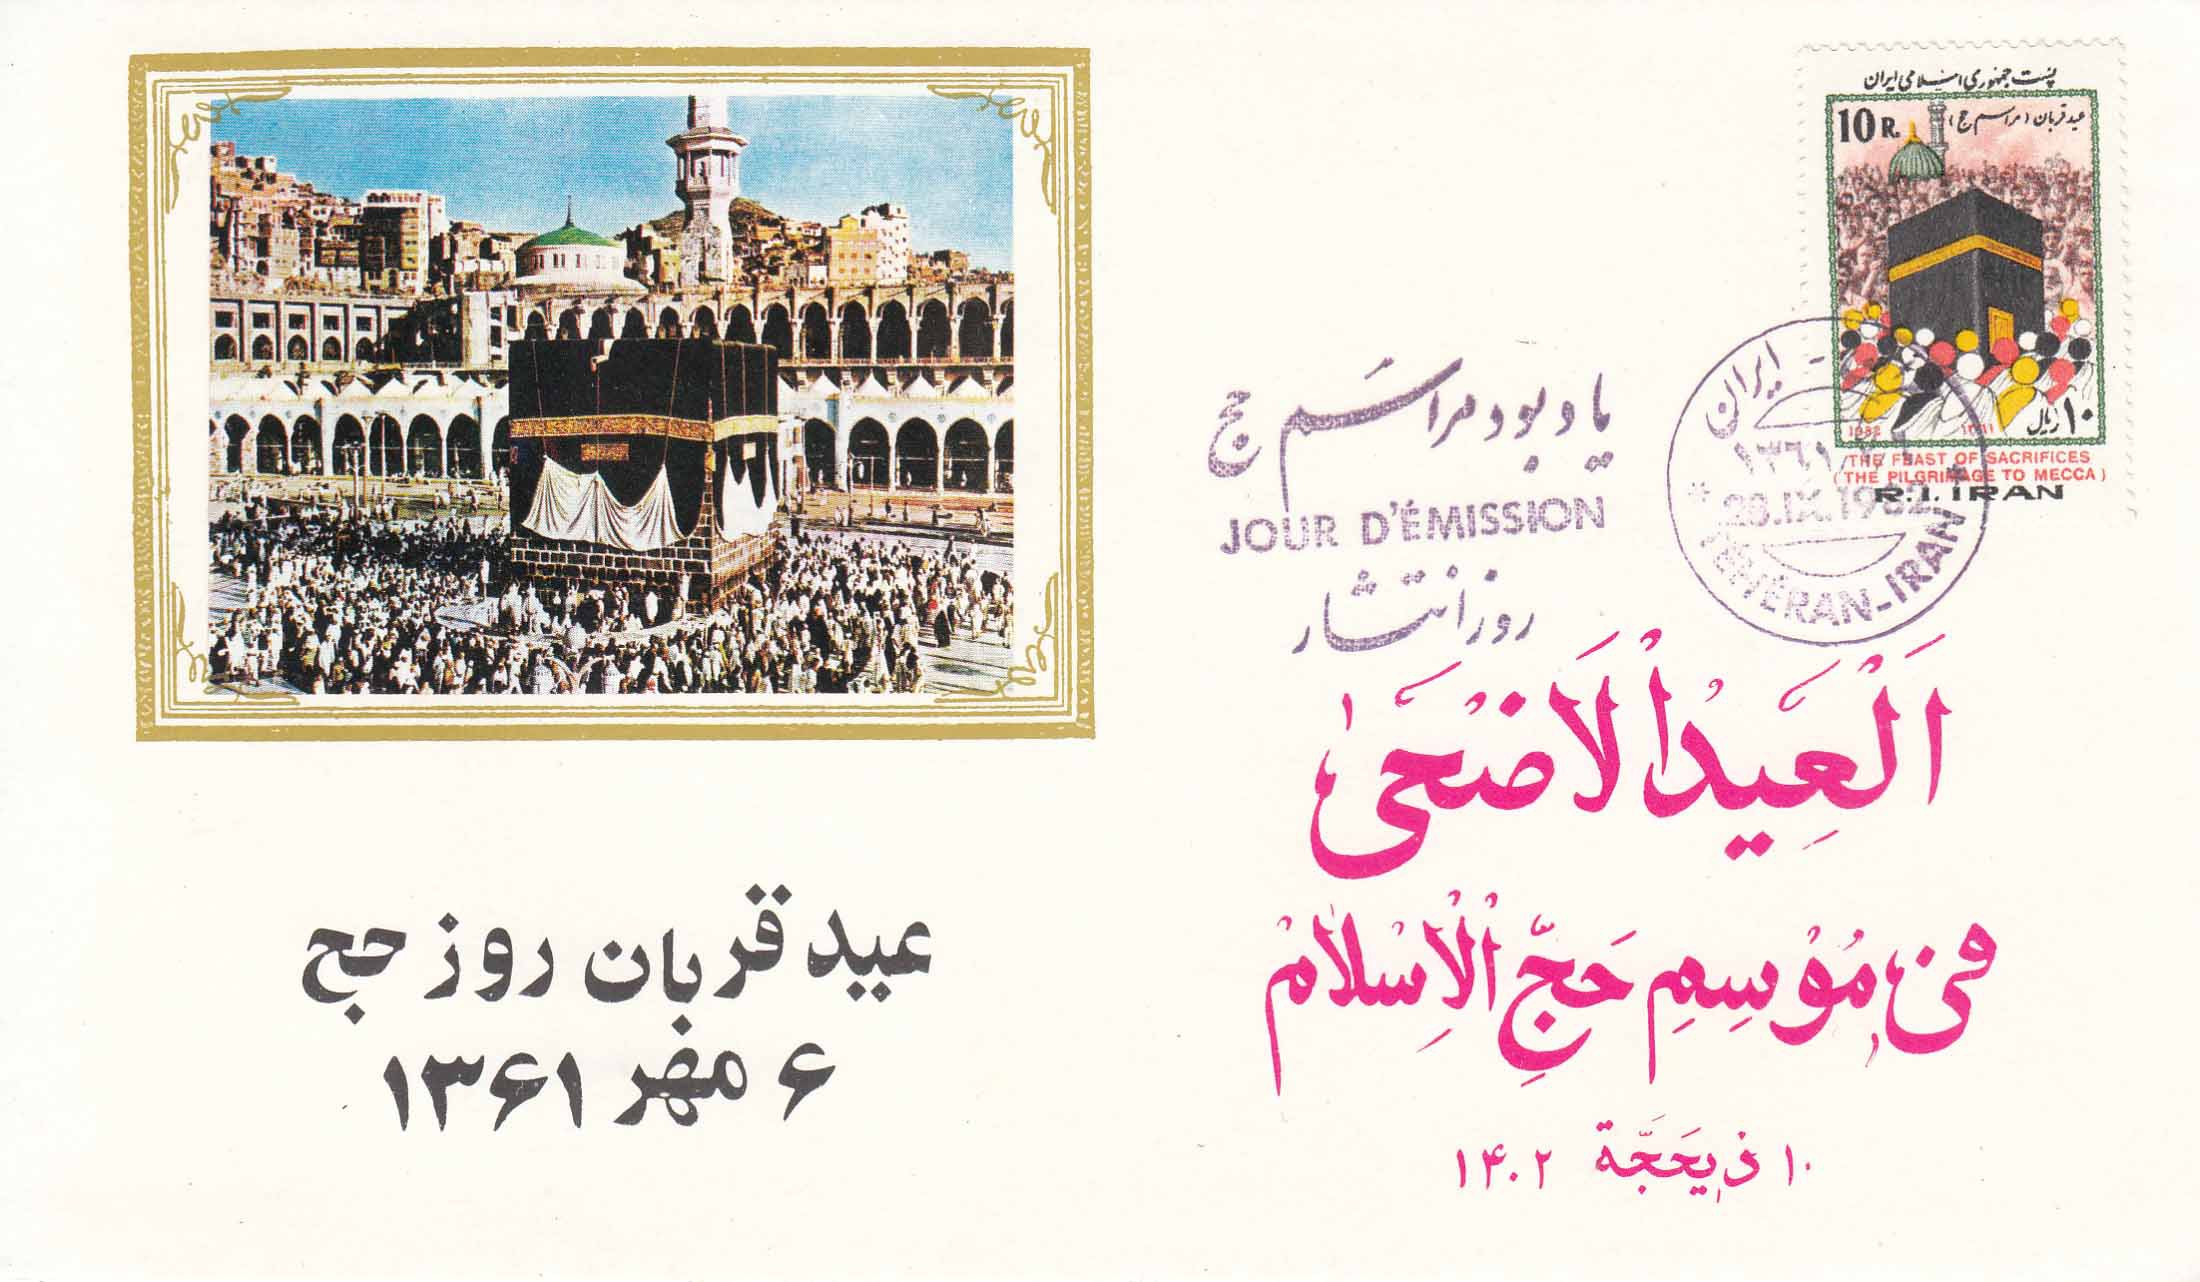 پست جمهوری اسلامی ایران
10 R.
عید قربان (مراسم حج)
۱۰ ریال
1982
۱۳۶۱
THE FEAST OF SACRIFICES
(THE PILGRIMAGE TO MECCA)
R.I. IRAN
ایران
۱۳۶۱
28.IX.1982
TEHERAN-IRAN
یادبود مراسم حج
JOUR D'ÉMISSION
روز انتشار
اَلْعِیدُ الْاَضْحیٰ
فی مُوْسِمِ حَجِّ الْاِسْلامْ
۱۰ ذیحَجَّة ۱۴۰۲
عید قربان روز حج
۶ مهر ۱۳۶۱